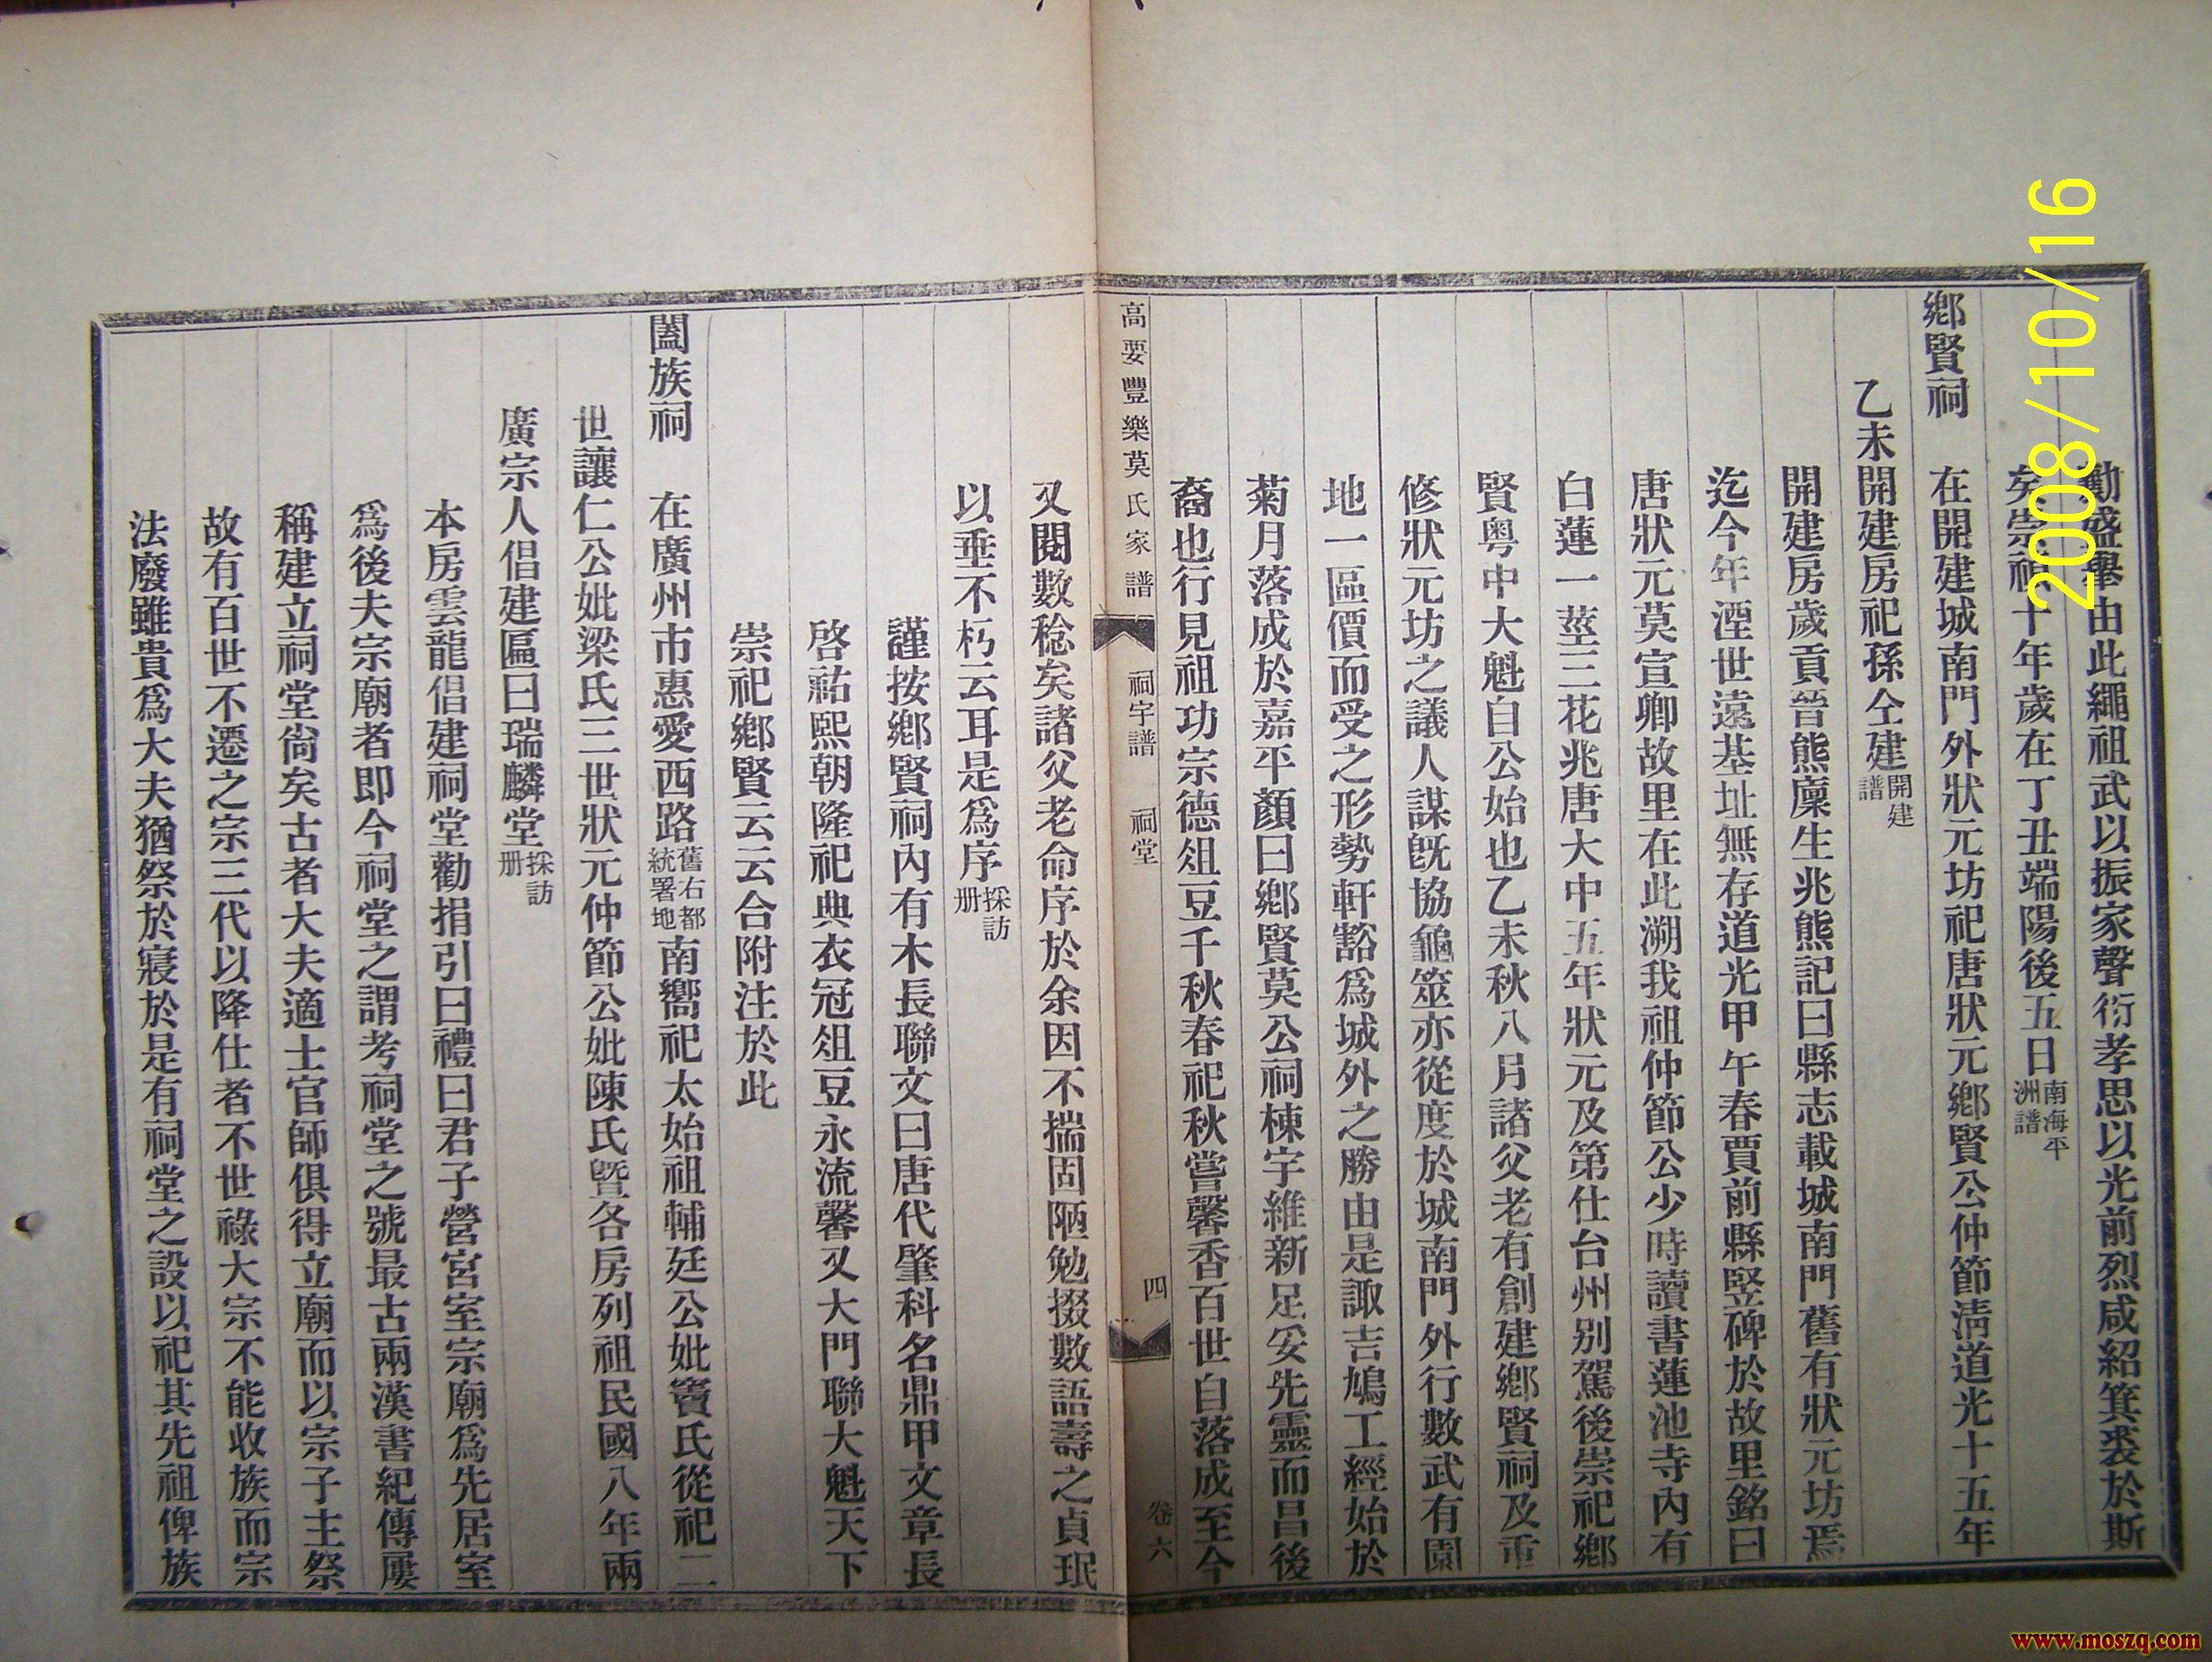 勸盛舉由此繩祖武以振家聲衍孝思以光前烈咸紹箕裘於斯
矣崇禎十年歲在丁丑端陽後五日南海平洲譜
鄉賢祠 在開建城南門外狀元坊祀唐狀元鄉賢公仲節淸道光十五年
乙未開建房祀孫仝建開建譜
開建房歲貢晉熊廩生兆熊記曰縣志載城南門舊有狀元坊焉
迄今年湮世遠基址無存道光甲午春賈前縣竪碑於故里銘曰
唐狀元莫宣卿故里在此溯我祖仲節公少時讀書蓮池寺內有
白蓮一莖三花兆唐大中五年狀元及第仕台州別駕後崇祀鄉
賢粤中大魁自公始也乙未秋八月諸父老有創建鄉賢祠及重
修狀元坊之議人謀旣協龜筮亦從度於城南門外行數武有園
地一區價而受之形勢軒豁爲城外之勝由是諏吉鳩工經始於
菊月落成於嘉平顏曰鄉賢莫公祠棟宇維新足妥先靈而昌後
裔也行見祖功宗德俎豆千秋春祀秋嘗馨香百世自落成至今
高要豐樂莫氏家譜 祠宇譜 祠堂 四 卷六
又閱數稔矣諸父老命序於余因不揣固陋勉掇數語壽之貞珉
以垂不朽云耳是爲序採訪册
謹按鄉賢祠內有木長聯文曰唐代肇科名鼎甲文章長
啓祐熙朝隆祀典衣冠俎豆永流馨又大門聯大魁天下
崇祀鄉賢云云合附注於此
闔族祠 在廣州市惠愛西路舊右都統署地南嚮祀太始祖輔廷公妣竇氏從祀二
世讓仁公妣梁氏三世狀元仲節公妣陳氏曁各房列祖民國八年兩
廣宗人倡建區曰瑞麟堂採訪册
本房雲龍倡建祠堂勸捐引曰禮曰君子營宮室宗廟爲先居室
爲後夫宗廟者即今祠堂之謂考祠堂之號最古兩漢書紀傳屢
稱建立祠堂尙矣古者大夫適士官師俱得立廟而以宗子主祭
故有百世不遷之宗三代以降仕者不世祿大宗不能收族而宗
法廢雖貴爲大夫猶祭於寢於是有祠堂之設以祀其先祖俾族
2008/10/16
www.moszq.com